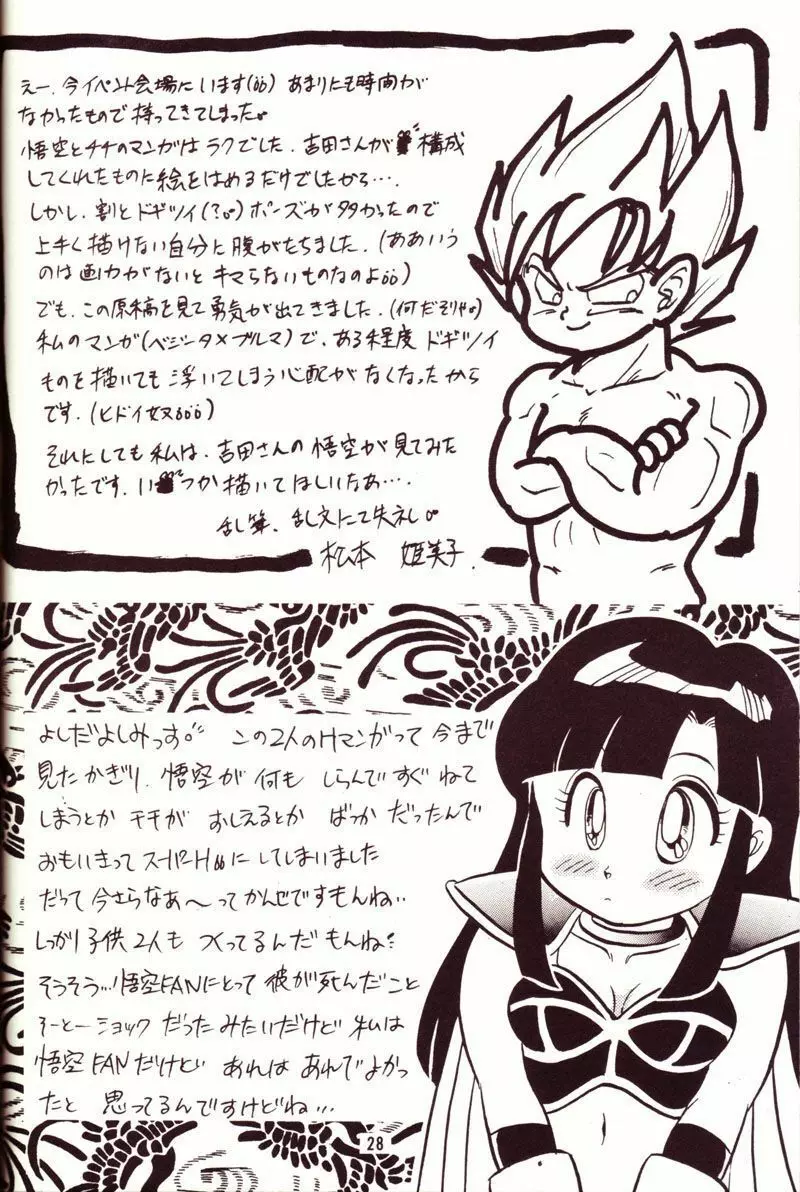 えー、今イベント会場にいます(õõ) あまりにも時間が
なかったもので持ってきてしまった。
悟空とチチのマンガはラクでした。吉田さんが 構成
してくれたものに絵をはめるだけでしたから‥‥.
しかし、割とドギツイ(?。)ポーズが多かったので
上手く描けない自分に腹がたちました。(ああいう
のは画力がないと キマらないものなのよõõ)
でも、この原稿を見て勇気が出てきました。(何だそりゃ。)
私のマンガ(ベジータ×ブルマ)で、ある程度 ドギツイ
ものを描いても 浮いてしまう心配がなくなったから
です。(ヒドイ奴õõõ)
それにしても私は、吉田さんの悟空が見てみた
かったです。い つか描いてほしいなあ‥‥.
乱筆、乱文にて失礼。
松本 姫美子.
よしだよしみっす。 この2人のHマンガって 今まで
見たかぎり、悟空が 何も しらんですぐ ねて
しまうとか チチが おしえるとか ばっか だったんで
おもいきって スーパーHõõにしてしまいました
だって 今さらなあ〜って かんじですもんね‥
しっかり子供2人も つくってるんだ もんね?
そうそう‥!悟空FANにとって 彼が死んだこと
そーとーショック だったみたいだけど 私は
悟空FANだけど あれは あれでよかっ
たと 思ってるんですけどね‥‥
28